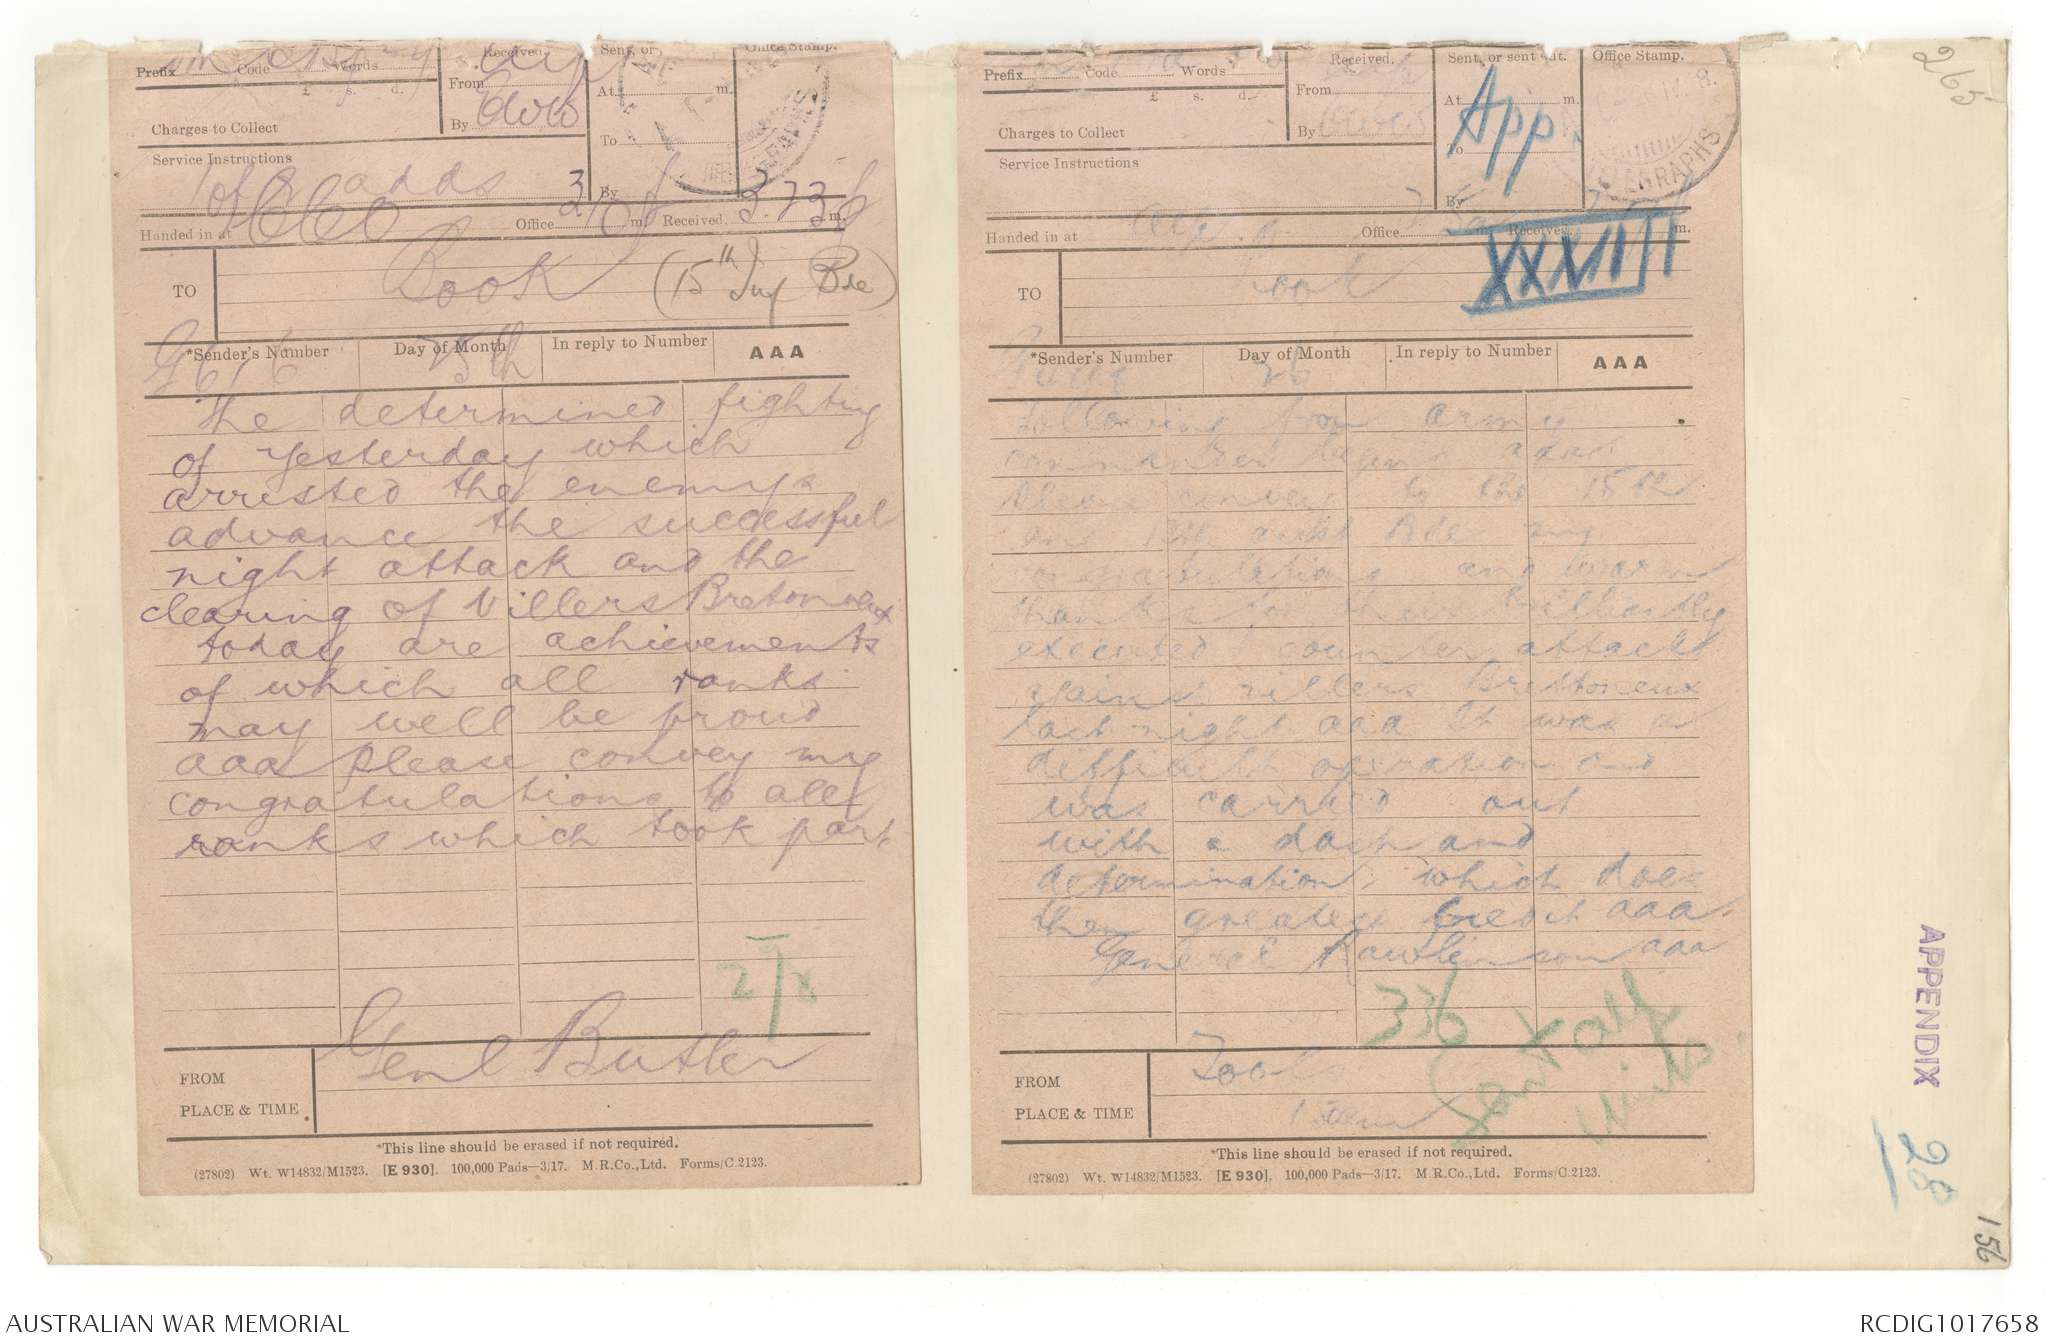 Prefix Code Words
£ s. d.
Charges to Collect
Received.
From
By
Sent, or
At m.
To
By
Office Stamp.
Service Instructions
adds
Handed in at Office m. Received. m.
TO Book (15th Inf Bde)
*Sender's Number Day of Month In reply to Number AAA
G616 25th
The determined fighting
of yesterday which
arrested the enemys
advance the successful
night attack and the
clearing of Villers Bretonneux
today are achievements
of which all ranks
may well be proud
aaa please convey my
congratulations to all
ranks which took part
FROM Genl Butler
PLACE & TIME
*This line should be erased if not required.
(27802) Wt. W14832/M1523. [E 930]. 100,000 Pads—3/17. M.R.Co.,Ltd. Forms/C.2123.
Prefix Code Words
£ s. d.
Charges to Collect
Received.
From
By
Sent, or sent out.
At m.
To
By
Office Stamp.
TELEGRAPHS
App
XXXVIII
Service Instructions
Handed in at Office m. Received m.
TO Book
*Sender's Number Day of Month In reply to Number AAA
26
following from army
commander begins aaa
Please convey to the 15th
and 13th aust Bde my
congratulations and warm
thanks for their brilliantly
executed counter attack
against villers Brettoneux
last night aaa It was a
difficult operation and
was carried out
with a dash and
determination which does
them greatest credit aaa
General Rawlinson aaa
336
Sent to all
Units.
FROM
PLACE & TIME
*This line should be erased if not required.
(27802) Wt. W14832/M1523. [E 930]. 100,000 Pads—3/17. M.R.Co.,Ltd. Forms/C.2123.
265
APPENDIX
28
156
AUSTRALIAN WAR MEMORIAL
RCDIG1017658